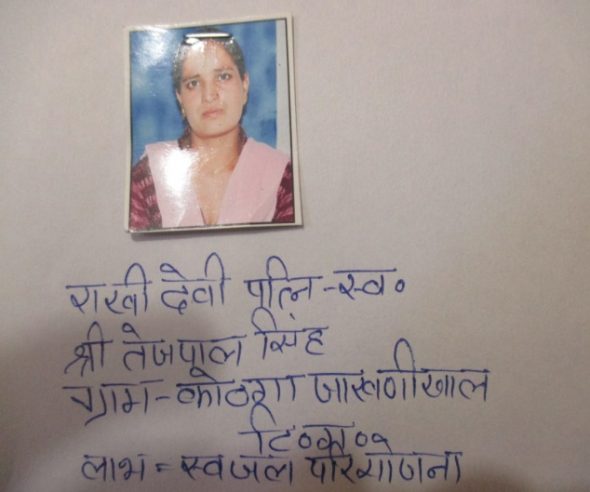 राखी देवी पत्नि-स्व॰
श्री तेजपाल सिंह
ग्राम-कोठगा जाखणीखाल
टि॰ग॰
लाभ = स्वजल परियोजना